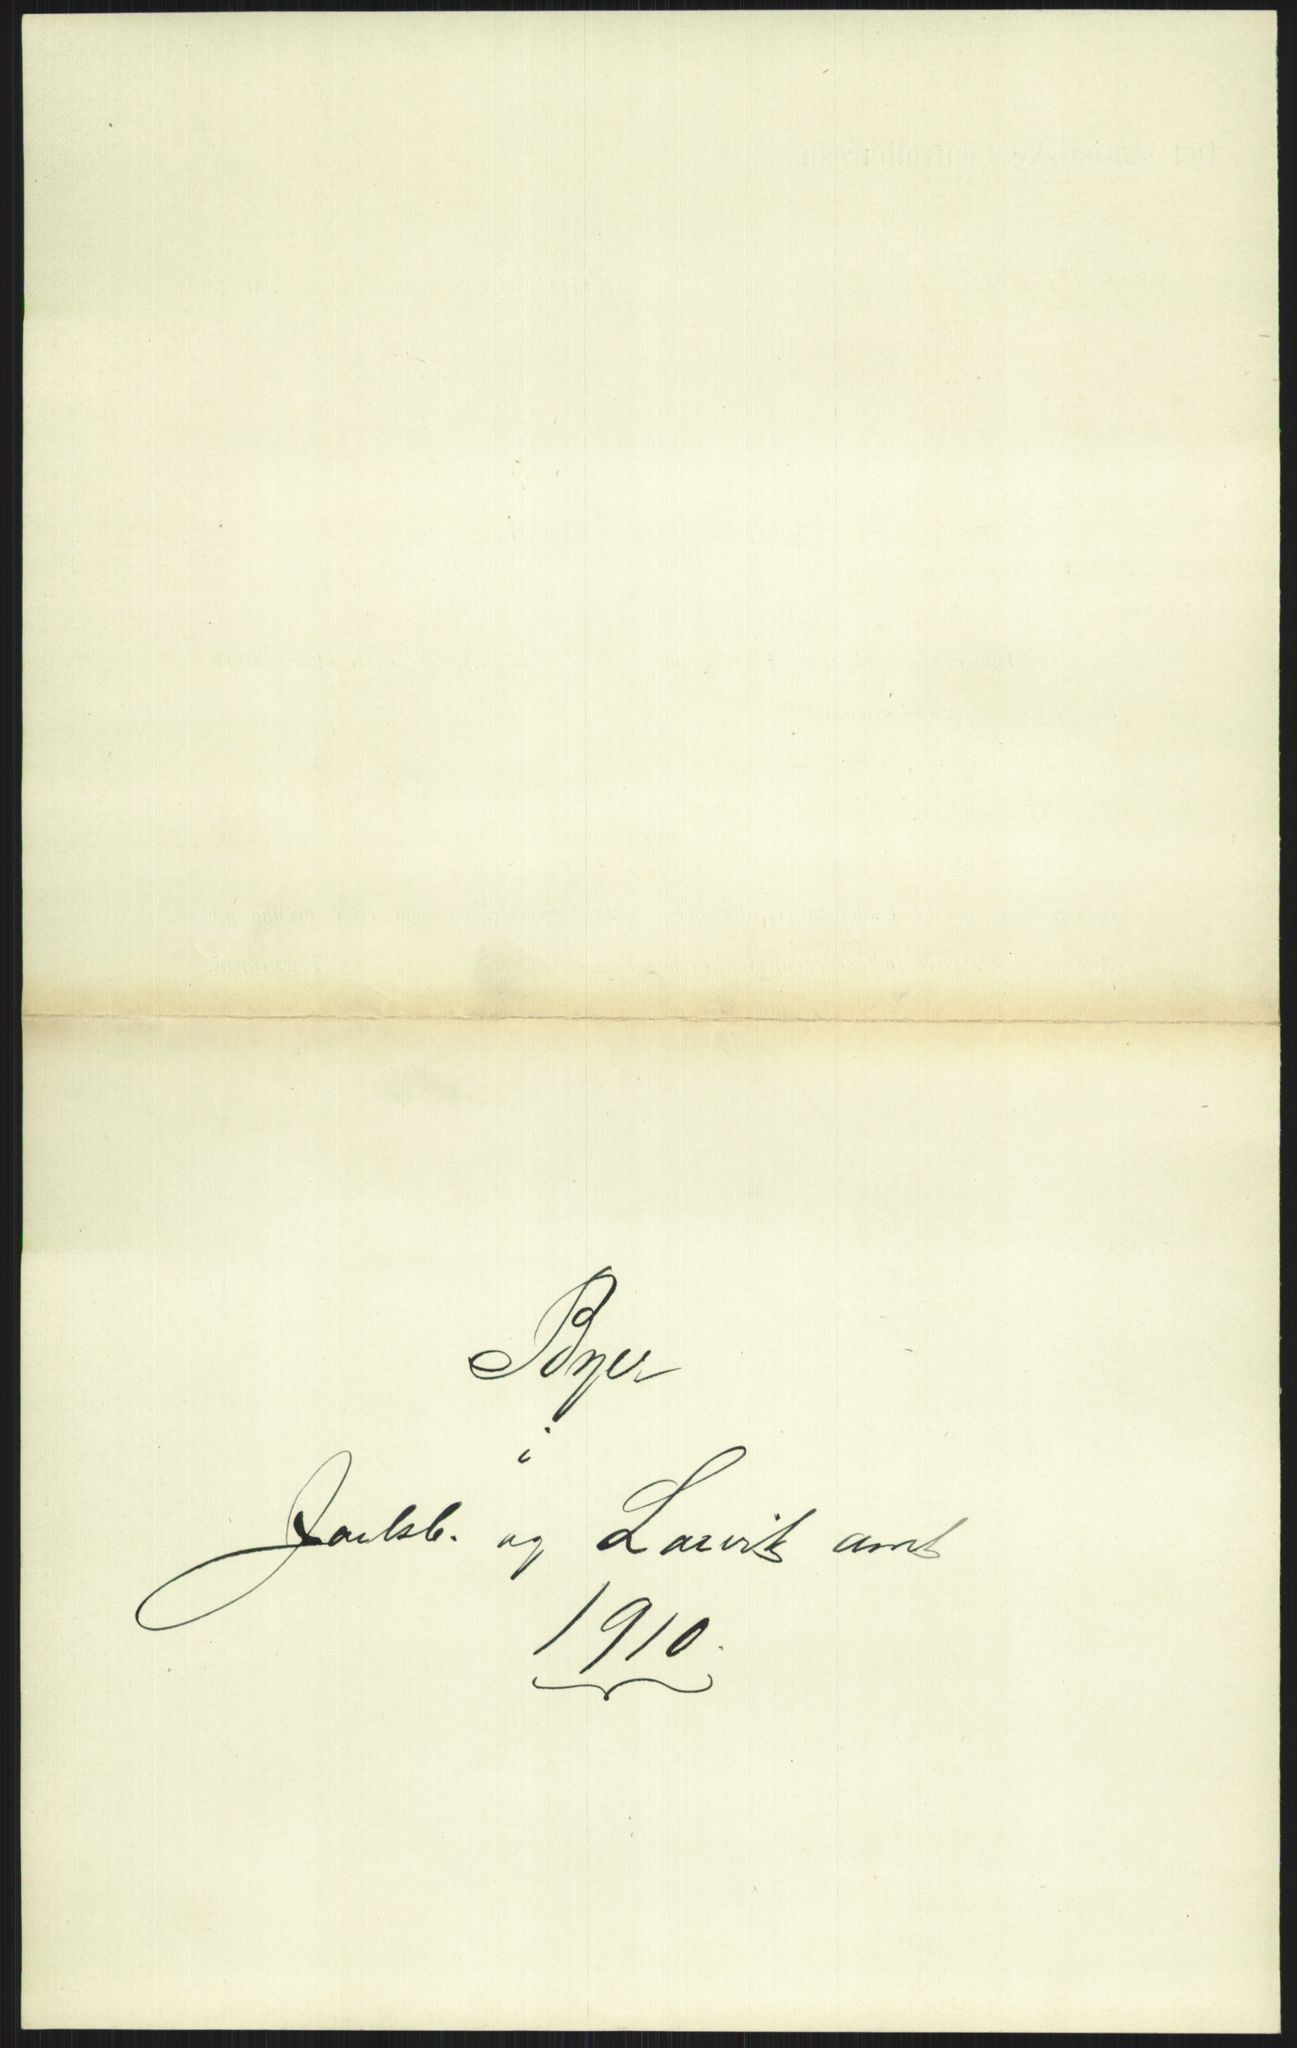 Byer
i
Jarlsb. og Larvik amt
1910.